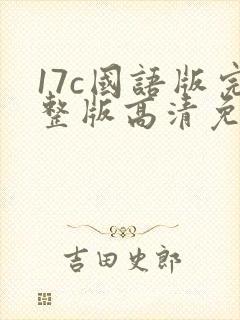 17c國語版完
整版高清免
吉田史郎